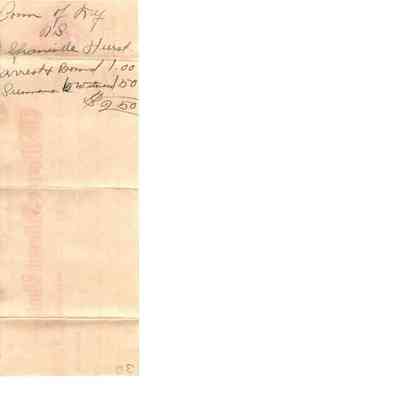 Com of Ky
VS
Granville Hurst
arrest & Bond 1.00
Summons 6 Witness 1.50
$2.50